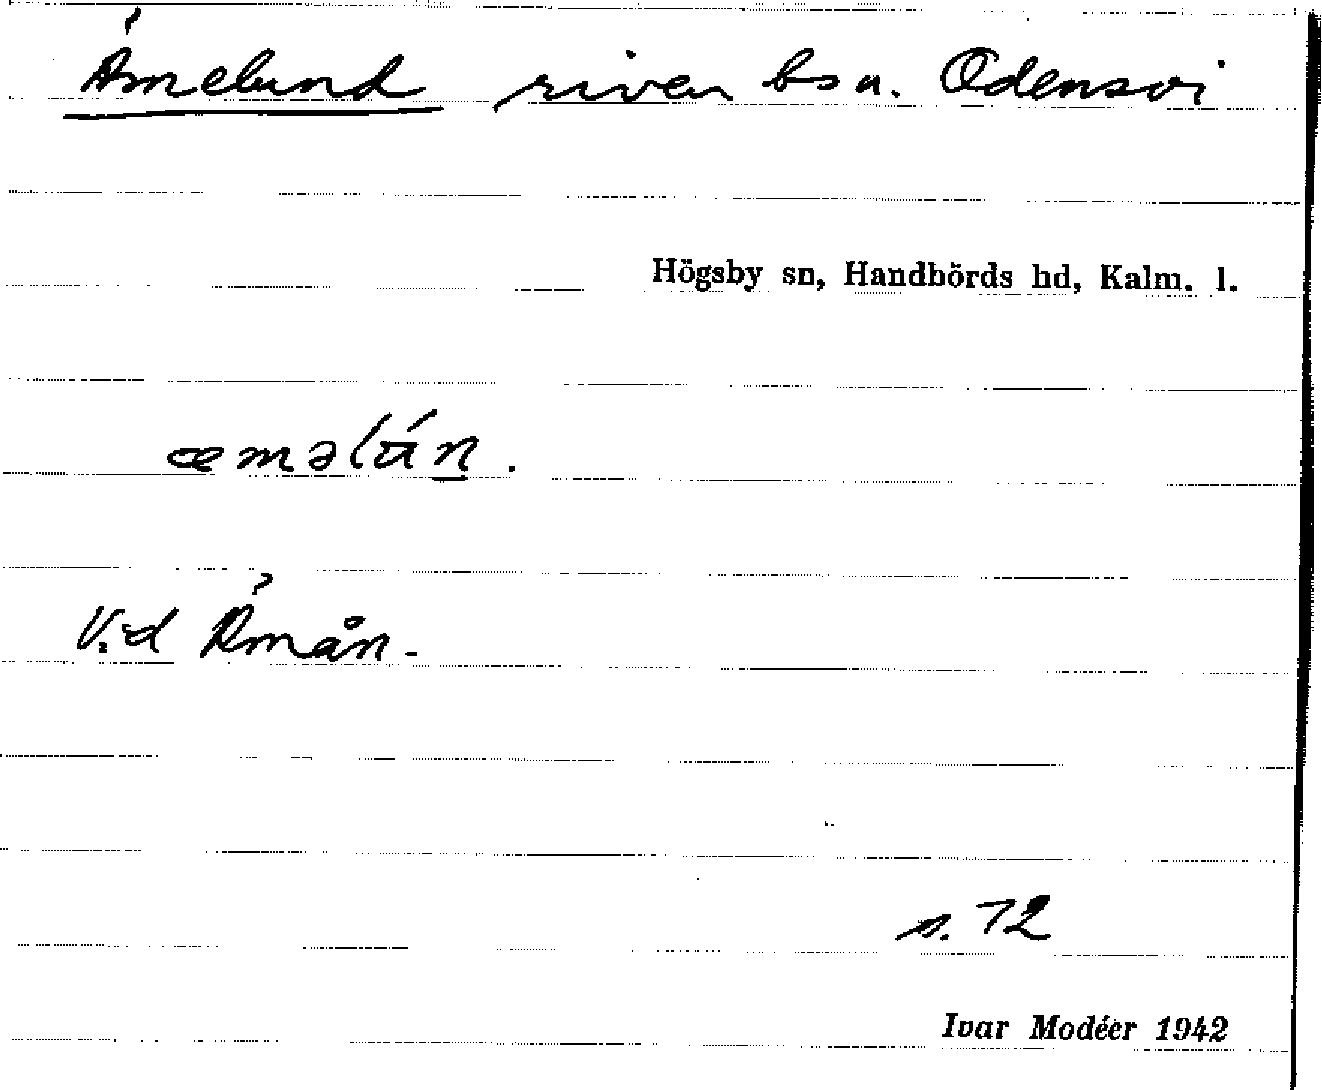 Ämelund riven bs u. Odensvi
Högsby sn, Handbörds hd, Kalm. l.
æməlún.
Vid Åmån.
s. 72
Ivar Modéer 1942